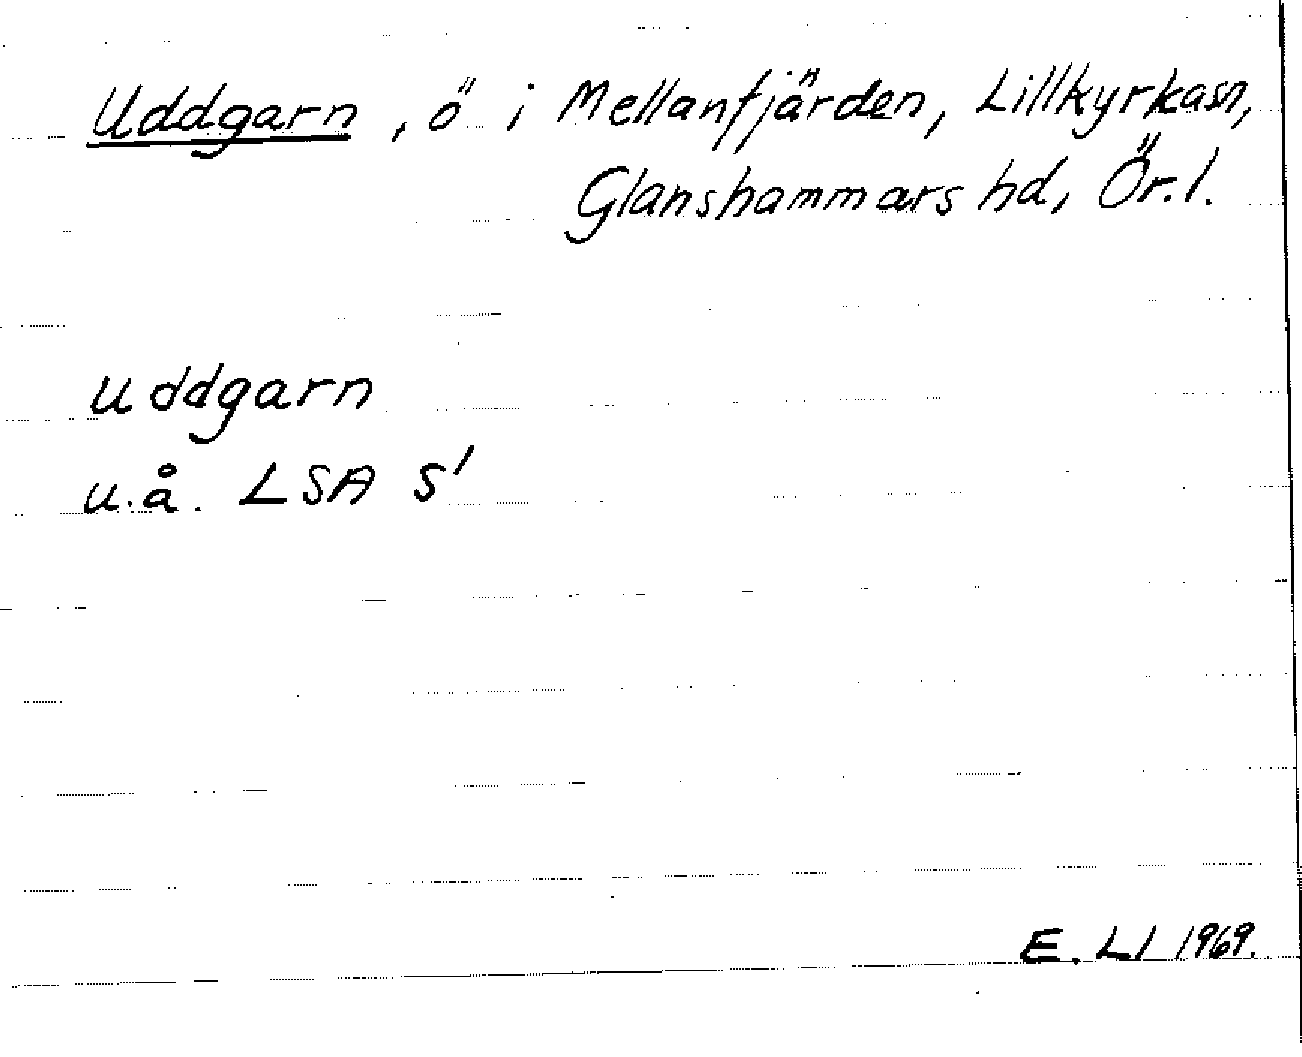 Uddgarn, ö i Mellanfjärden, Lillkyrka sn,
Glanshammars hd, Ör. l.
Uddgarn
u.å. LSA S'
E. Ll 1969.